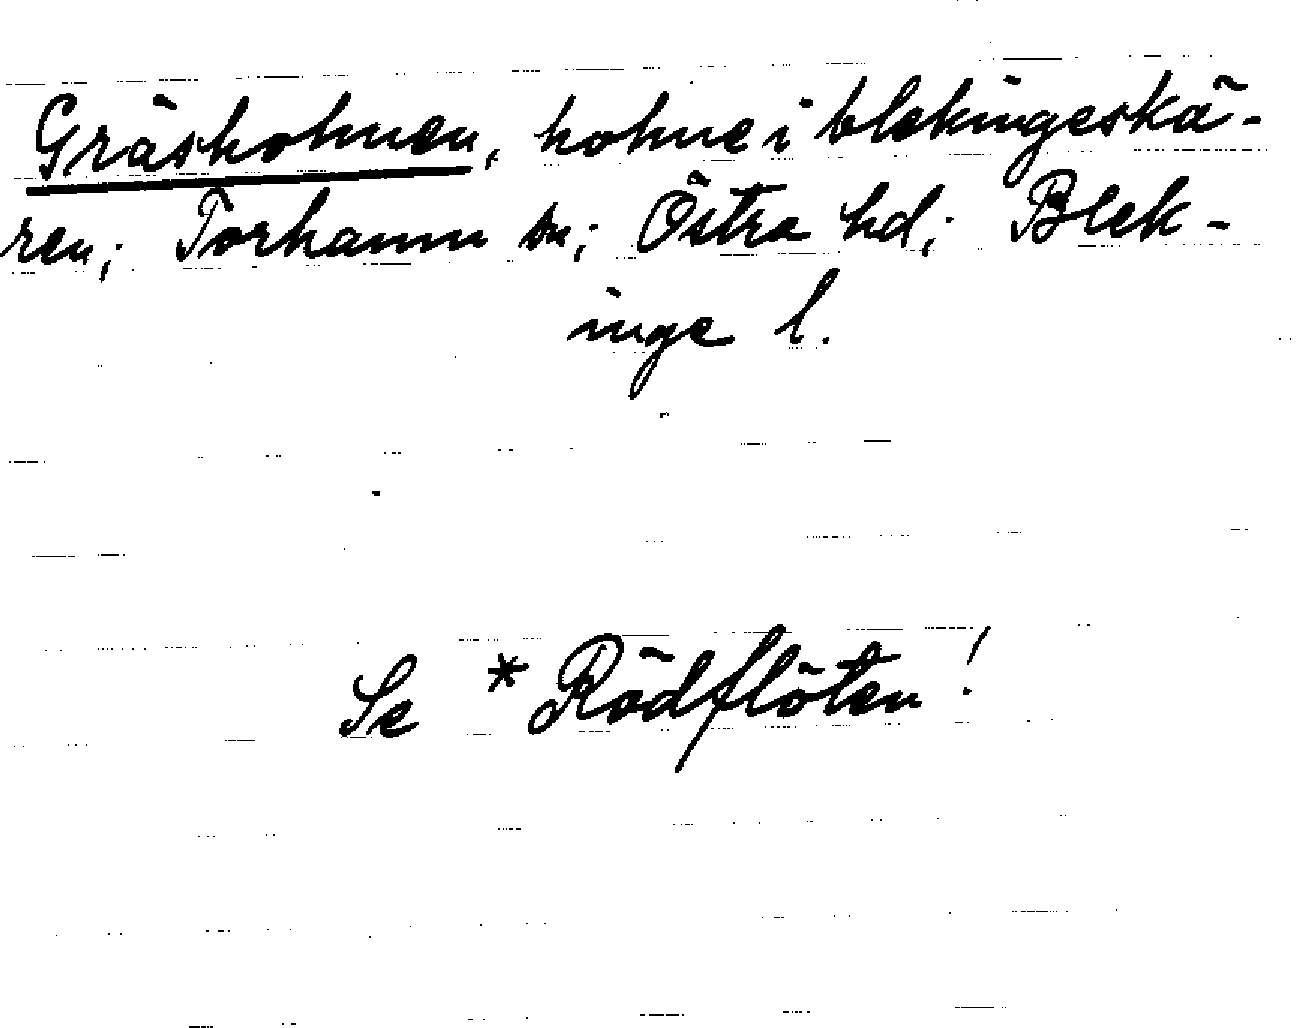 Gräsholmen, holme i blekingeskä-
ren; Torhamn sn; Östra hd; Blek-
inge l.
Se * Rödflöten!